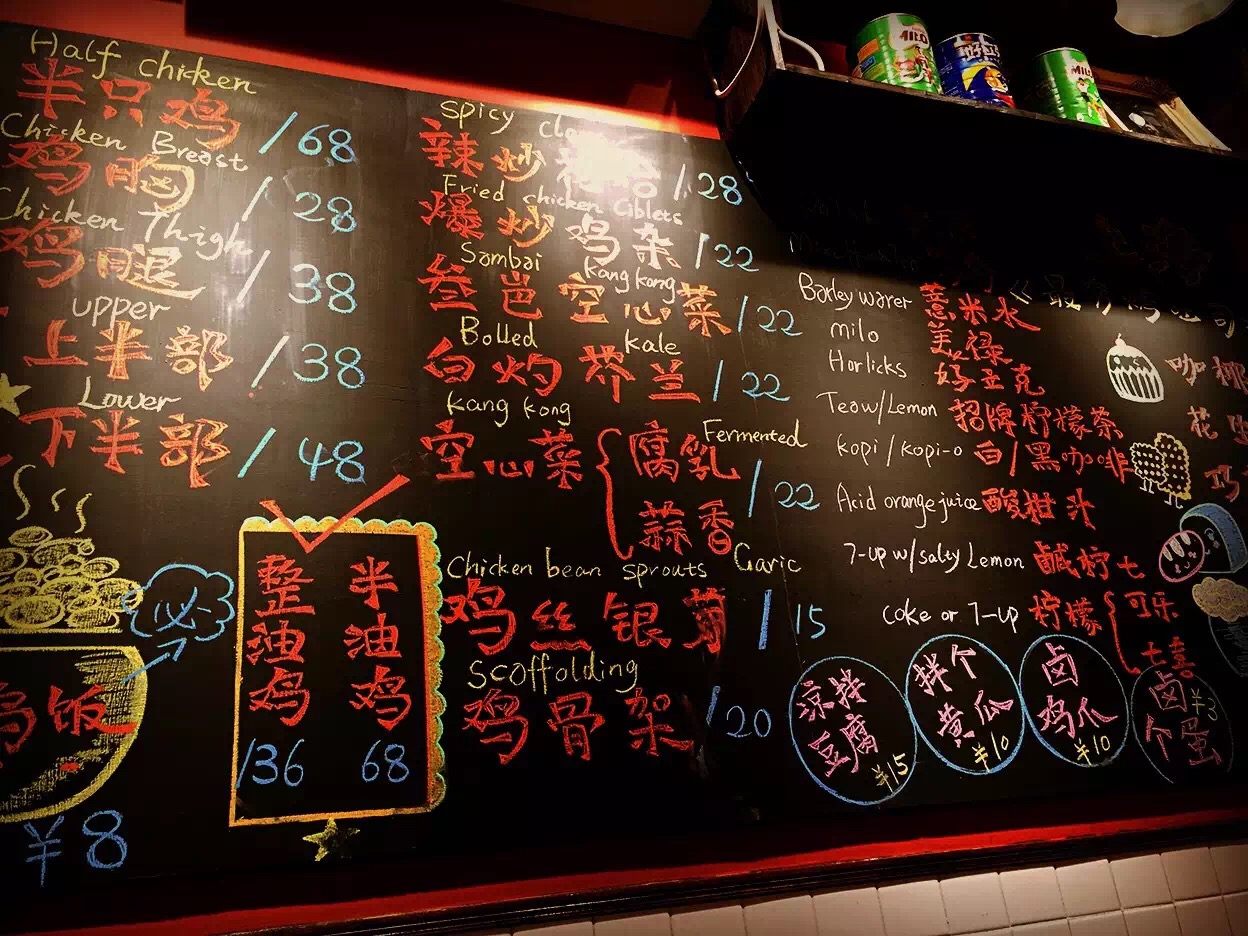 Half chicken
半只鸡 /68
Chicken Breast
鸡胸 /28
Chicken Thigh
鸡腿 /38
upper
上半部 /38
Lower
下半部 /48
鸡饭
¥8
整油鸡
136
半油鸡
68
spicy
辣炒 /28
Fried chicken Giblets
爆炒鸡杂 /22
Sambai kang kong
叁岜空心菜 /22
Bolled kale
白灼芥兰 /22
kang kong
空心菜
Fermented
腐乳
蒜香
/22
Garic
Chicken bean sprouts
鸡丝银芽 /15
Scoffolding
鸡骨架 /20
MILO
MILO
Barley warer 薏米水
milo 美禄
Horlicks 好立克
Tea w/Lemon 招牌柠檬茶
kopi/kopi-o 白/黑咖啡
Acid orange juice 酸柑汁
7-up w/salty Lemon 鹹柠七
coke or 7-up 柠檬
可乐
七喜
凉拌豆腐
¥15
拌个黄瓜
¥10
卤鸡爪
¥10
卤个蛋
¥3
咖椰
花
巧